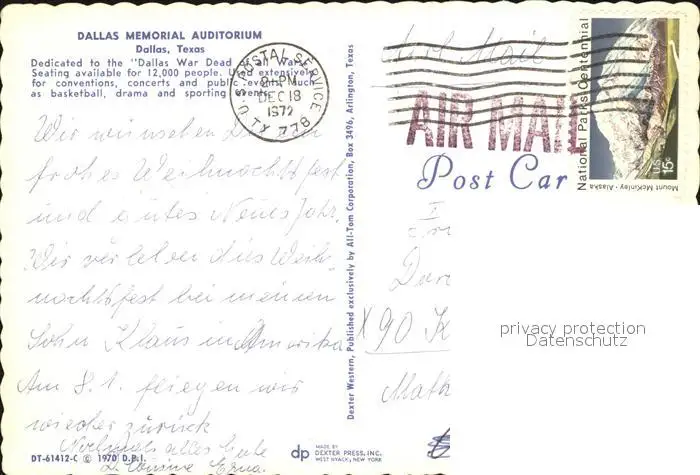 DALLAS MEMORIAL AUDITORIUM
Dallas, Texas
Dedicated to the "Dallas War Dead of All Wars."
Seating available for 12,000 people. Used extensively
for conventions, concerts and public events, such
as basketball, drama and sporting events.
U.S. POSTAL SERVICE
PM
DEC 18
1972
TX 778
Wir wünschen
frohes Weihnachtsfest
und gutes Neues Jahr.
Wir verleben das Weih-
nachtsfest bei meinem
Sohn Klaus in Amerika
Am 8.1. fliegen wir
wieder zurück
Nochmals alles Gute
Cousine Erna.
DT-61412-C © 1970 D.P.I.
Dexter Western, Published exclusively by All-Tom Corporation, Box 3496, Arlington, Texas
dp MADE BY
DEXTER PRESS, INC.
WEST NYACK, NEW YORK
Air Mail
AIR MAIL
Post Car
National Parks Centennial
Mount McKinley · Alaska
US 15c
X 90 K
privacy protection
Datenschutz